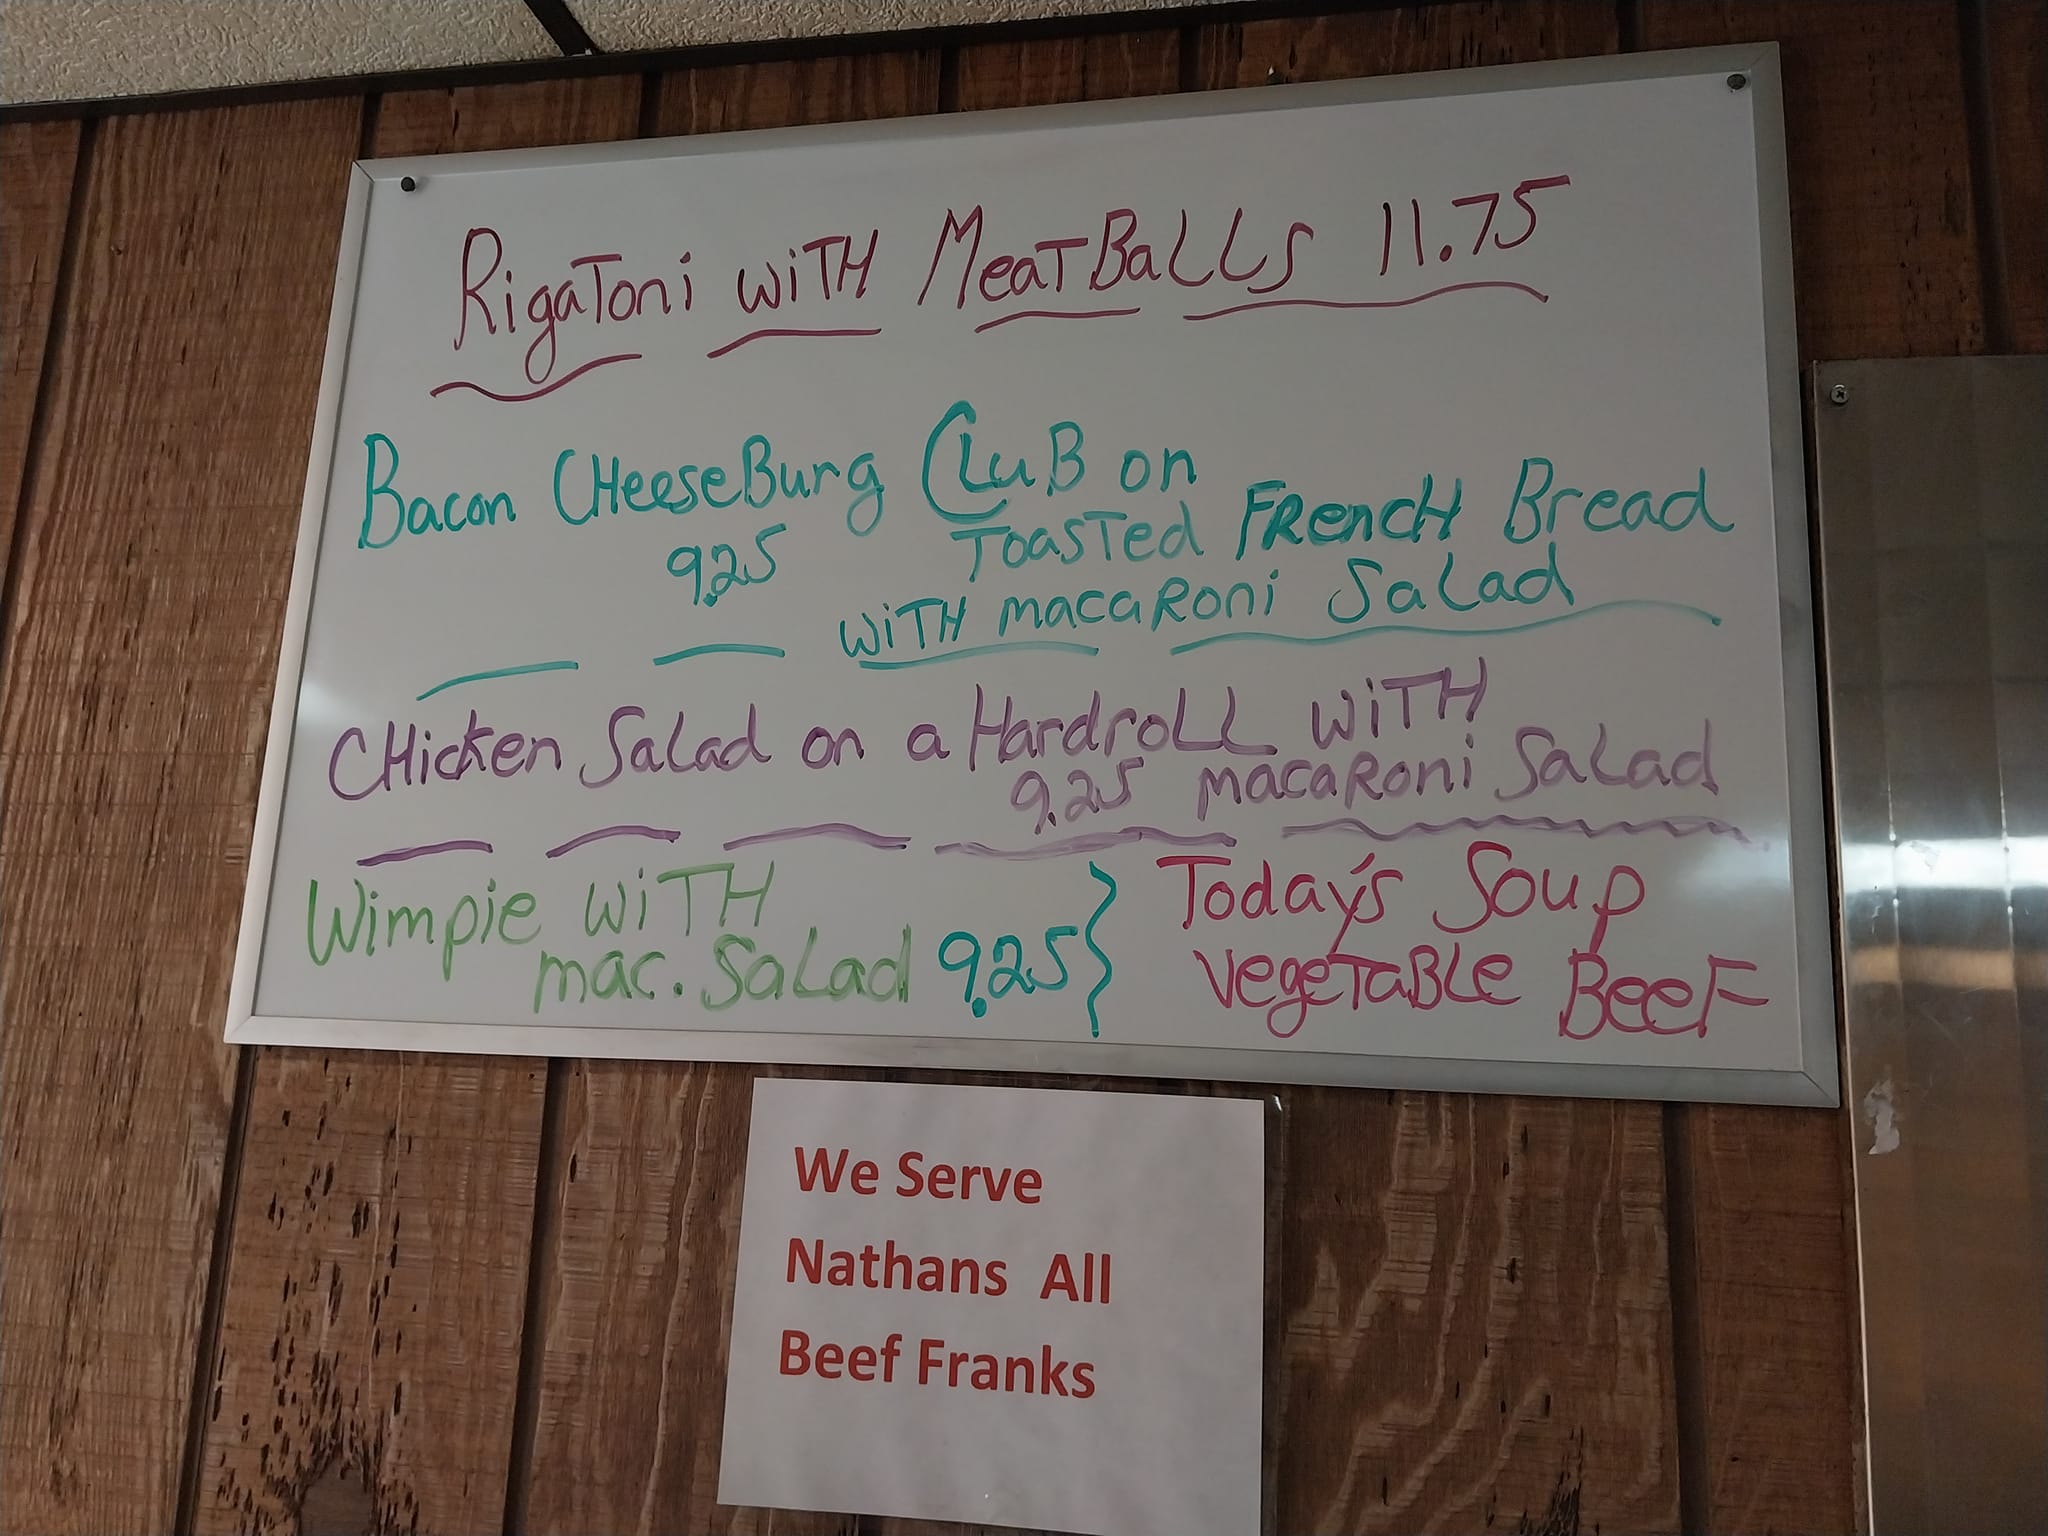 RigaToni wiTH MeaTBaLLs 11.75
Bacon CHeeseBurg CLuB on
9.25 ToasTed FRencH Bread
wiTH macaRoni SaLad
CHicken SaLad on a HardroLL wiTH
9.25 macaRoni SaLad
Wimpie wiTH
mac. SaLad 9.25
Today's Soup
VegeTaBLe BeeF
We Serve
Nathans All
Beef Franks